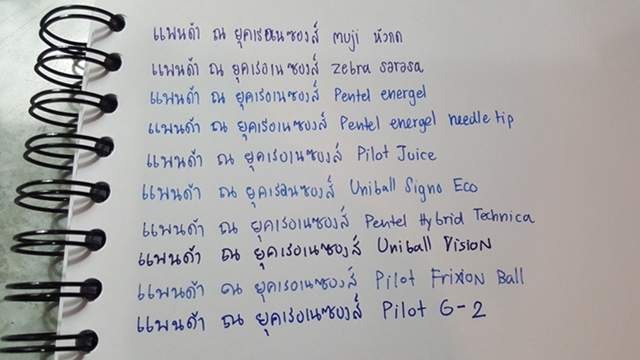 แพนด้า ณ ยุคเรอเนซองส์ muji หัวกด
แพนด้า ณ ยุคเรอเนซองส์ zebra sarasa
แพนด้า ณ ยุคเรอเนซองส์ Pentel energel
แพนด้า ณ ยุคเรอเนซองส์ Pentel energel needle tip
แพนด้า ณ ยุคเรอเนซองส์ Pilot Juice
แพนด้า ณ ยุคเรอเนซองส์ Uniball Signo Eco
แพนด้า ณ ยุคเรอเนซองส์ Pentel Hybrid Technica
แพนด้า ณ ยุคเรอเนซองส์ Uniball Vision
แพนด้า ณ ยุคเรอเนซองส์ Pilot Frixion Ball
แพนด้า ณ ยุคเรอเนซองส์ Pilot G-2